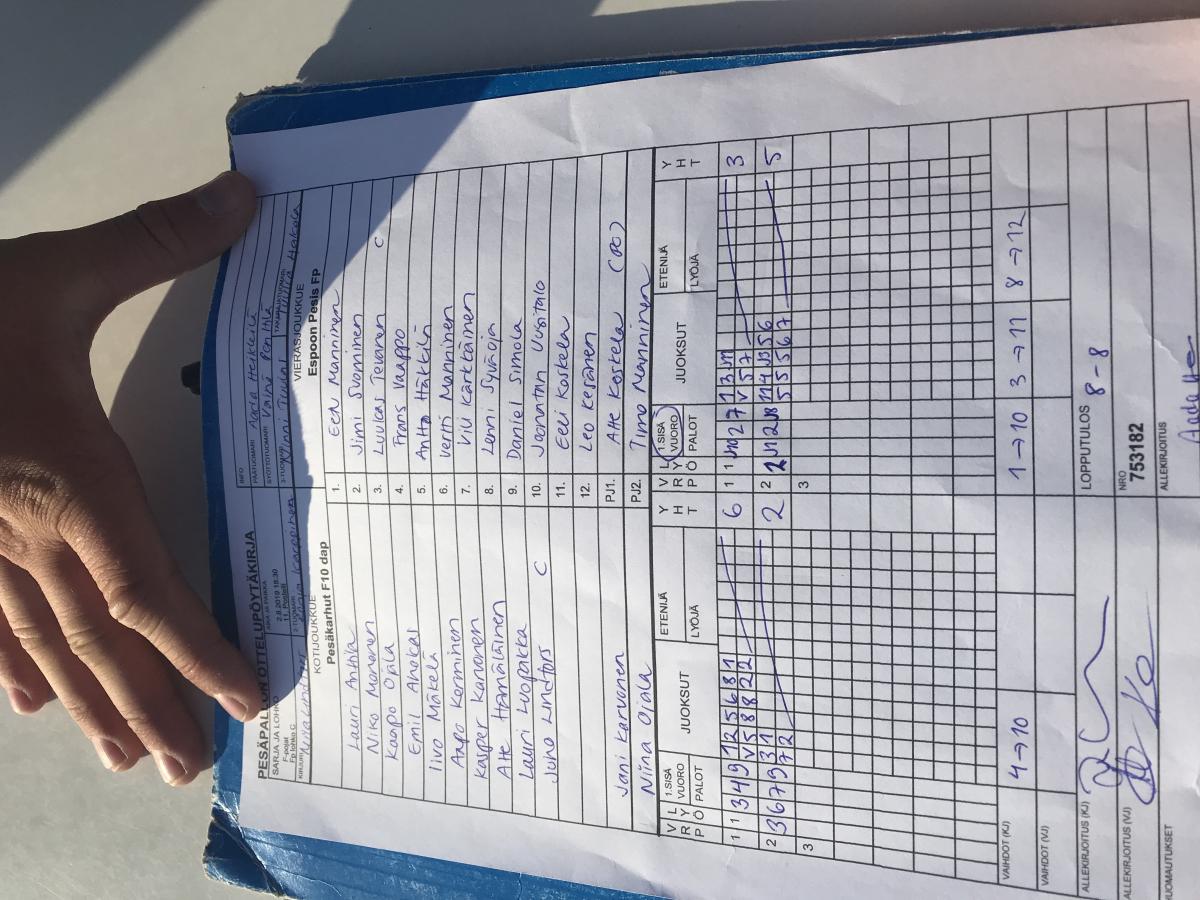 PESÄPALLON OTTELUPÖYTÄKIRJA
SARJA JA LOHKO
F-pojat
Fp lohko C
AIKA JA PAIKKA
2.8.2019 18:30
11. Postelli
INFO
PÄÄTUOMARI Heikkilä
SYÖTTÖTUOMARI Väinö Penttilä
KIRJURI
2-TUOMARI Karppinen
3-TUOMARI
TAKARAJATUOMARI Hakala
KOTIJOUKKUE VIERASJOUKKUE
Pesäkarhut F10 dap Espoon Pesis FP
Lauri Anttila 1. Eedu Manninen
Niko Mononen 2. Jimi Suoninen
Kaapo Ojala 3. Luukas Teivonen C
Emil Anokas 4. Frans Vaappo
Iivo Mäkelä 5. Antto Häkkilä
Aapo Kerminen 6. Vertti Manninen
Kasper Karvonen 7. Vili Kärkkäinen
Atte Hämäläinen 8. Lenni Syväoja
Lauri Luopakka 9. Daniel Simola
Juho Lindfors C 10. Joonatan Uusitalo
11. Eeli Koskela
12. Leo Kesänen
Jani Karvonen PJ1. Atte Koskela (PO)
Niina Ojala PJ2. Timo Manninen
VRP LYÖ 1.SISÄ VUORO PALOT JUOKSUT ETENIJÄ LYÖJÄ YHT VRP LYÖ 1.SISÄ VUORO PALOT JUOKSUT ETENIJÄ LYÖJÄ YHT
1 1 3 4 9 1 2 5 6 8 1 6 1 1 10 2 7 1 3 11 3
V 5 8 8 2 2 V 5 7
2 3 6 7 9 3 1 2 2 2 11 2 8 11 4 3 5 6 5
7 2 5 5 5 6 7
3 3
VAIHDOT (KJ) 4→10 1→10 3→11 8→12
VAIHDOT (VJ)
ALLEKIRJOITUS (KJ) LOPPUTULOS 8-8
ALLEKIRJOITUS (VJ) NRO 753182
HUOMAUTUKSET ALLEKIRJOITUS